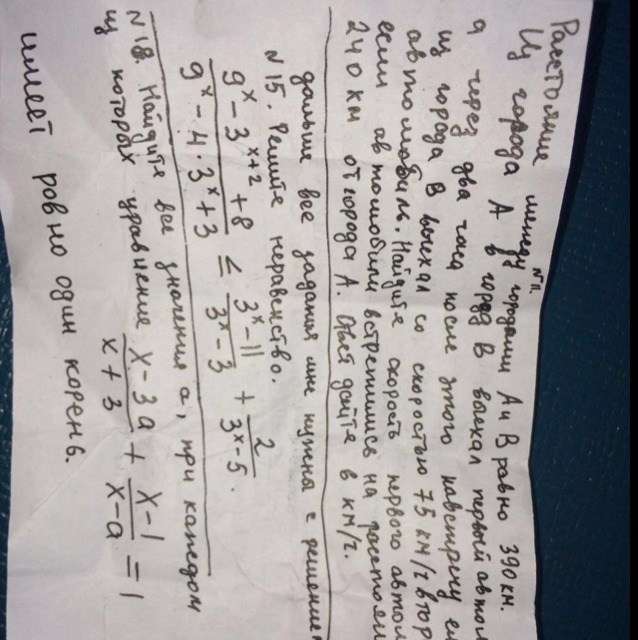 №11.
Расстояние между городами А и В равно 390 км.
Из города А в город В выехал первый автом
а через два часа после этого навстречу ем
из города В выехал со скоростью 75 км/ч втор
автомобиль. Найдите скорость первого автом
если автомобили встретились на расстоян
240 км от города А. Ответ дайте в км/ч.
дальше все задания мне нужна с решением
№15. Решите неравенство.
(9^x - 3^{x+2} + 8)/(9^x - 4·3^x + 3) ≤ (3^x - 11)/(3^x - 3) + 2/(3^x - 5).
№18. Найдите все значения а, при каждом
из которых уравнение (x - 3a)/(x + 3) + (x - 1)/(x - a) = 1
имеет ровно один корень.